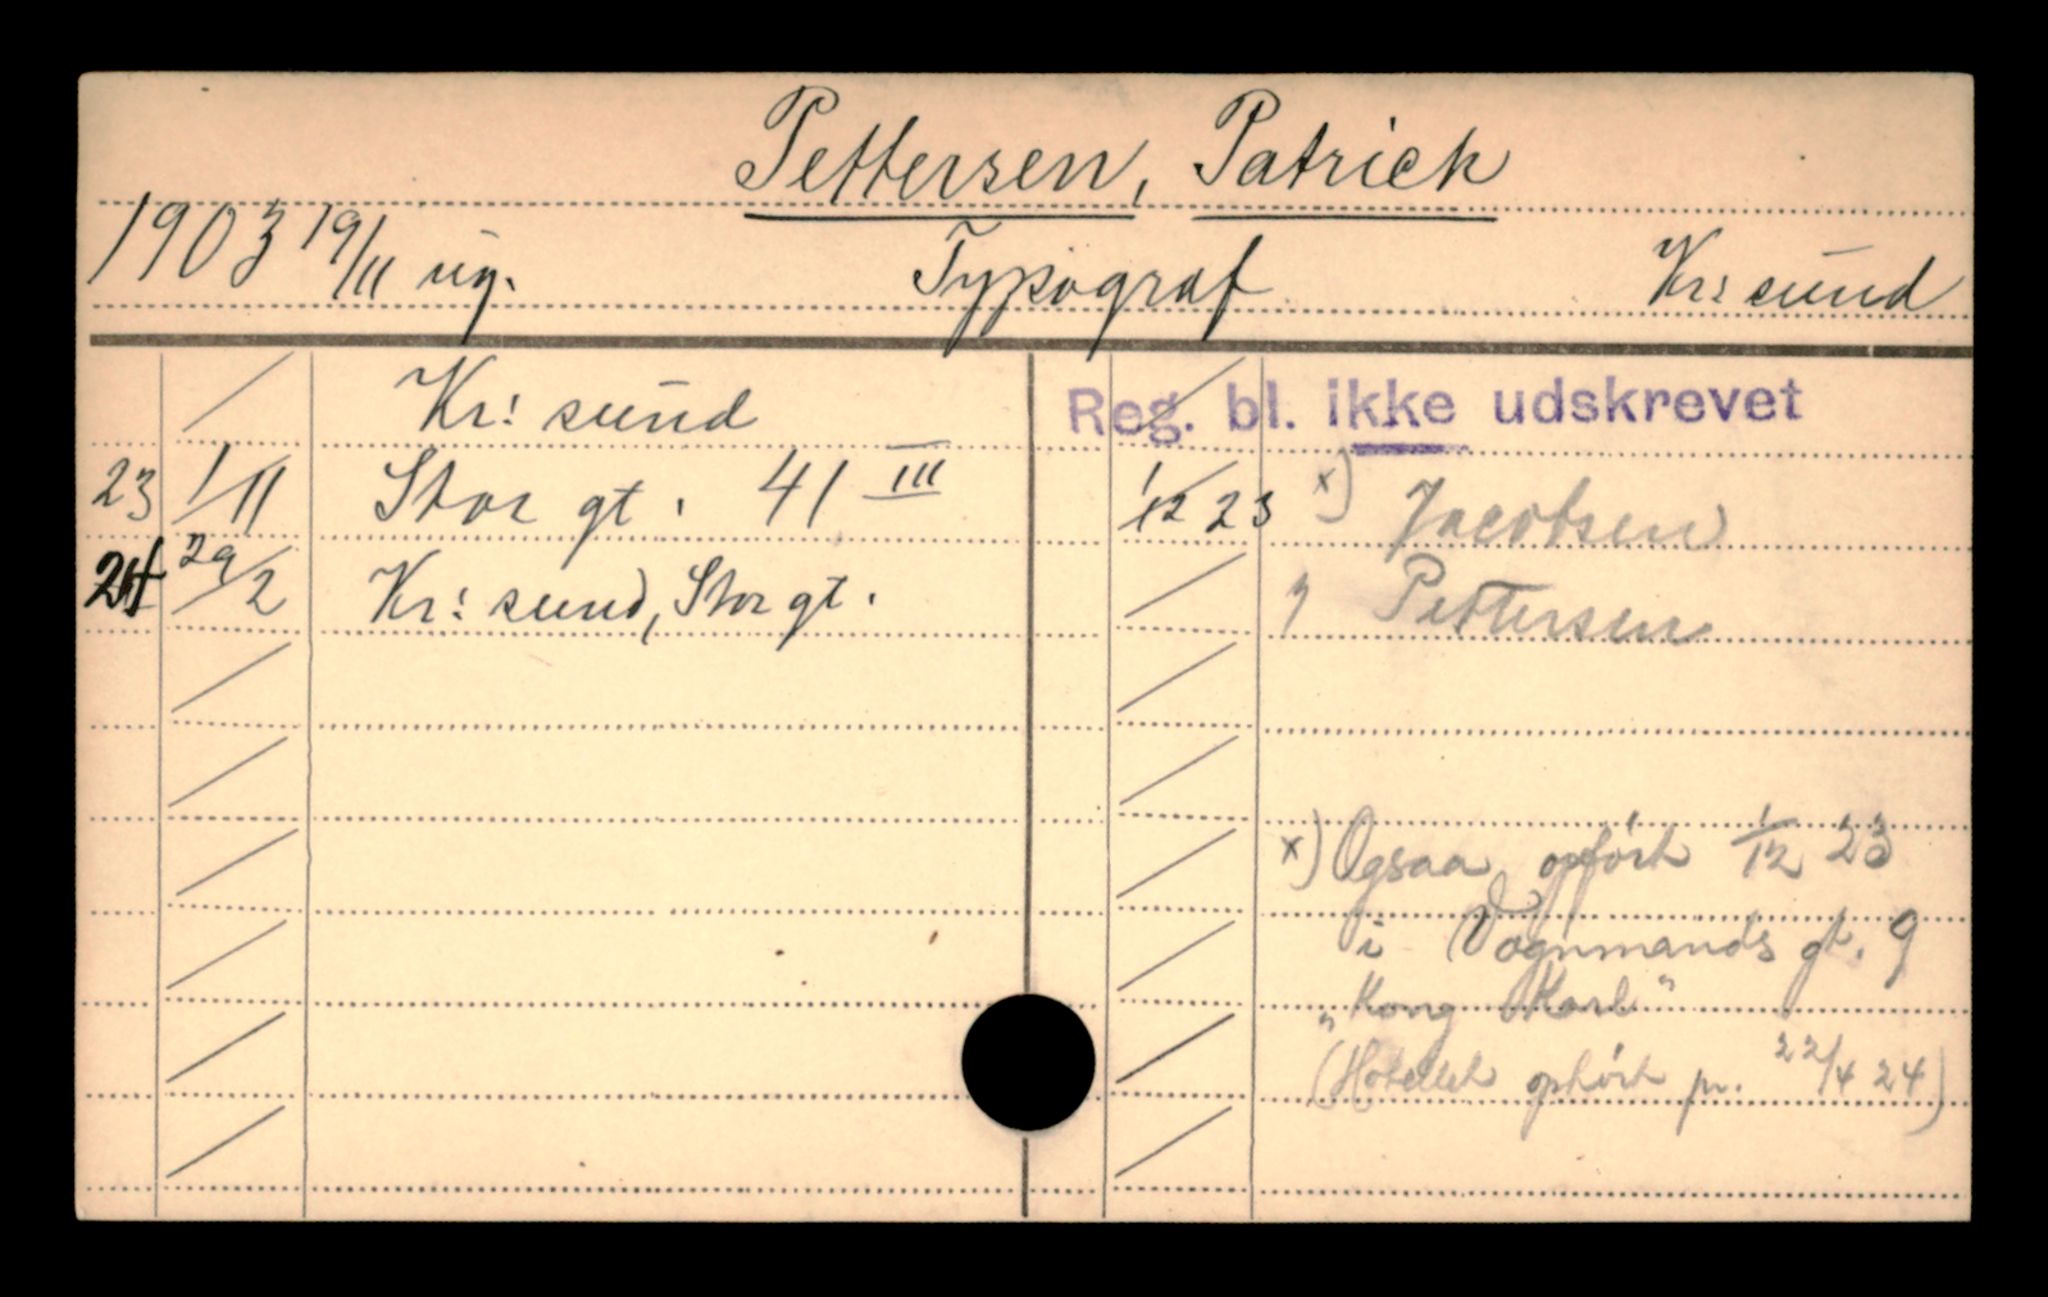 Pettersen, Patrick
1903 19/11 ug. Typograf Kr: sund
Kr: sund Reg. bl. ikke udskrevet
23 1/11 Stor gt. 41 III 1/12 23 x) Jacobsen
24 29/2 Kr: sund, Stor gt. Pettersen
x) Ogsaa opført 1/12 23
i Vognmands gt. 9
„Kong Karl"
(Hotellet ophørt pr. 22/4 24)